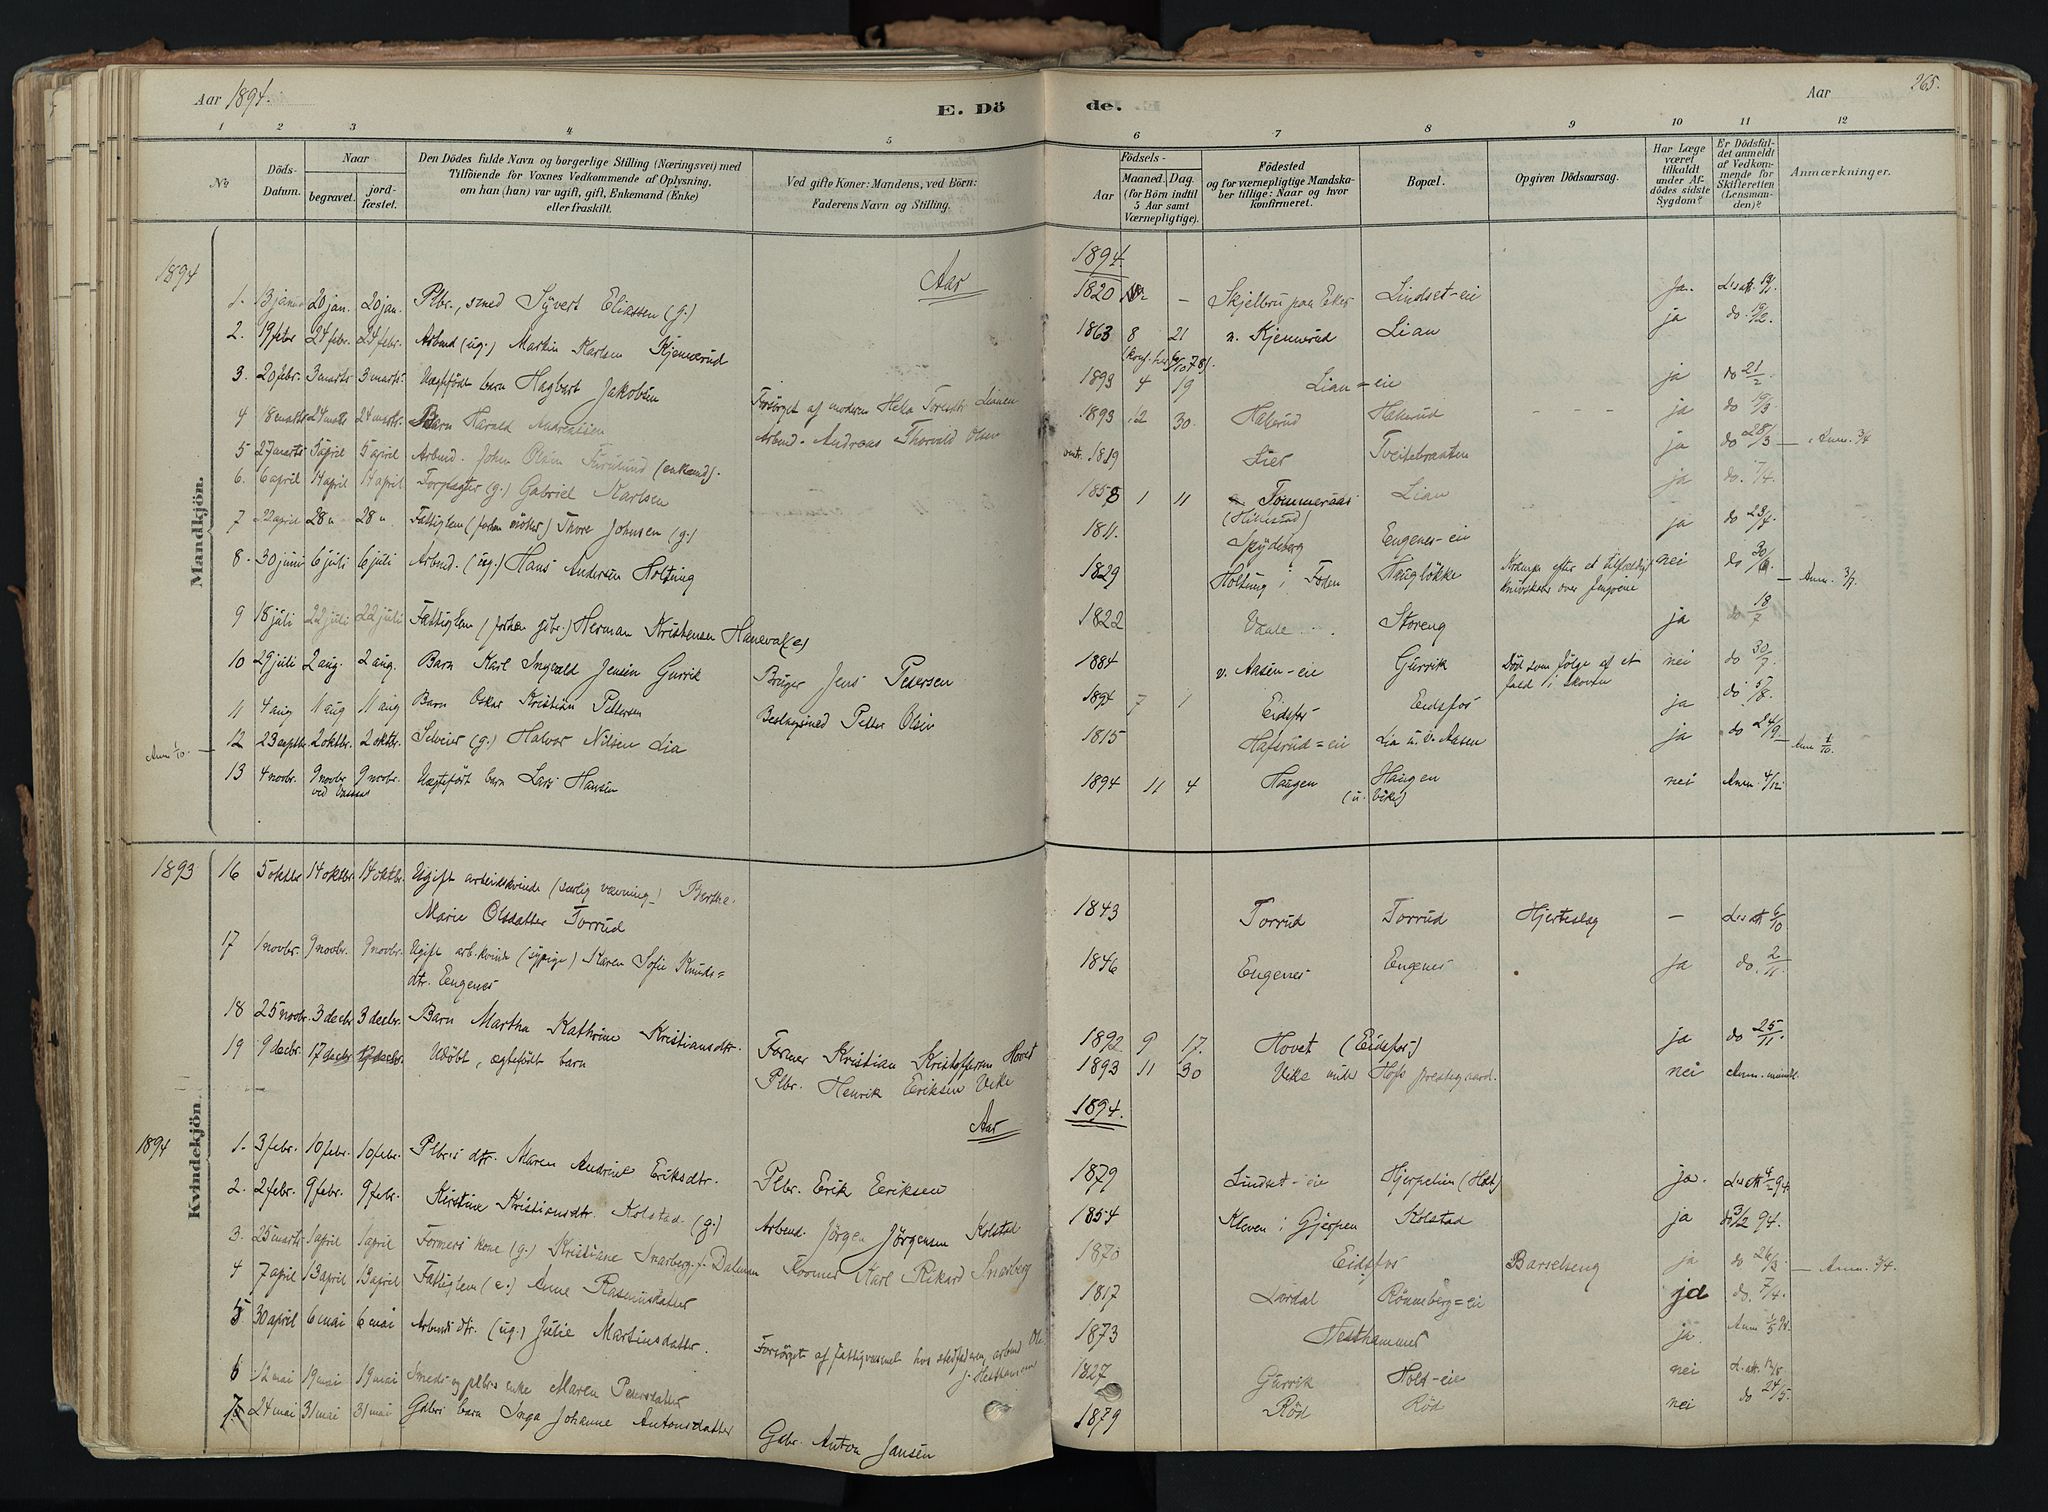 Aar 1894.
E. Döde.
Aar
265.
1 2 3 4 5 6 7 8 9 10 11 12
No
Döds-Datum.
Naar
begravet.
jord-fæstet.
Den Dödes fulde Navn og borgerlige Stilling (Næringsvei) med
Tilföiende for Voxnes Vedkommende af Oplysning,
om han (hun) var ugift, gift, Enkemand (Enke)
eller fraskilt.
Ved gifte Koner: Mandens, ved Börn:
Faderens Navn og Stilling.
Födsels-
Aar
Maaned. Dag.
(for Börn indtil
5 Aar samt
Værnepligtige).
Födested
og for værnepligtige Mandska-
ber tillige: Naar og hvor
konfirmeret.
Bopæl.
Opgiven Dödsaarsag.
Har Læge
været
tilkaldt
under Af-
dödes sidste
Sygdom?
Er Dödsfal-
det anmeldt
af Vedkom-
mende for
Skifteretten
(Lensman-
den)?
Anmærkninger.
Mandkjön.
1894 Aar 1894
1. 13 januar 20 jan. 20 jan. Plbr., smed Syvert Eliassen (g.) 1820 – Skjelbru paa Eker Lindset-eie Ja.
2. 19 febr 24 febr. 24 febr. Arbmd (ug.) Martin Karlsen Kjennerud 1863 8 21 n. Kjennerud Lian ja do 19/2.
3. 20 febr. 3 marts 3 marts Uægtefödt barn Hagbart Jakobsen Forsörget af moderen 1893 4 19 Lian=eie ja do 21/2.
4 8 marts 24 marts 24 marts Barn Harald Andreassen Arbmd. Andreas Thorvald Olsen 1893 12 30. Hakerud Hakerud - - - ja do 19/3
5 27 marts 5 april 5 april Arbmd. Johan Olsen Furulund (enkemd). 1819 Lier Tveitebraaten ja do 28/3 – Anm. 3/4
6. 6 april 14 april 14 april Forpagter (g.) Gabriel Karlsen 1858 1 11 Tommeraas (Hillestad) Lian ja do. 7/4.
7 22 april 28 " 28 " Fattiglem Thore Johnsen (g.) 1811. Spydeberg Eugenes-eie ja do 23/4.
8. 30 juni 6 juli 6 juli Arbmd. (ug.) Hans Andersen Holtung 1829 Holtung i Foden Haugløkke Krampe efter et tilfældigt nei do 30/6 – Anm. 3/7.
9 18 juli 22 juli 22 juli Fattiglem Herman Kristensen 1822 Vaale Storeng ja do 18/7
10 29 juli 2 aug. 2 aug. Barn Karl Ingvald Jensen Gurrik Bruger Jens Pedersen 1884 v. Aasen-eie Gurrik Död som fölge af et fald i skoven nei do 30/7.
11 4 aug 11 aug 11 aug Barn Oskar Kristian Pettersen Beslagsmed Petter Olsen 1894 7 1 Eidsfos Eidsfos ja do 5/8.
Anm 1/10. – 12 23 septbr. 2 oktbr. 2 oktbr. Selveier (g.) Halvor Nilsen Lia 1815 Hafsrud=eie Lia u. v. Aasen ja do 24/9 – Anm 1/10.
13 4 novbr. 9 novbr 9 novbr. Uægtefödt barn Lars Hansen 1894 11 4 Haugen Haugen (u. Vike) nei Anm. 4/12.
Kvindekjön.
1893 16 5 oktbr 14 oktbr 14 oktbr. Ugift arbeidskvinde (særlig vævning) Berthe
Marie Olsdatter Torrud 1843 Torrud Torrud Hjerteslag – 6/10
17 1 novbr. 9 novbr. 9 novbr. Ugift arb.kvinde (sypige) Karen Sofie Knuds=
dtr. Eugenes 1846 Eugenes Eugenes ja do. 2/11.
18 25 novbr. 3 decbr 3 decbr. Barn Martha Kathrine Kristiansdtr. Former Kristian Kristoffersen Hovet 1892 9 17. Hovet (Eidsfos) ja do 25/11.
19 9 decbr. 17 decbr 17 decbr. Udöbt, ægtefödt barn Plbr. Henrik Eriksen Vike 1893 11 30 Vike under Hofs prestegaard. nei Anm. mundtl.
Aar 1894.
1894 1. 3 febr. 10 febr. 10 febr. Plbr.s dtr. Maren Andrine Eriksdtr. Plbr. Erik Eriksen 1879 Lindset-eie Hjerpelien (Holt) ja. 4/2 94.
2. 2 febr. 9 febr. 9 febr. Kirstine Kristiansdtr. Kolstad (g.) Arbmd. Jörgen Jörgensen Kolstad 1854 Kleven i Gjerpen Kolstad ja do 3/2 94.
3. 25 marts 1 april 1 april Formers kone (g.) Kristiane Snarberg f. Dalman Former Karl Rikard Snarberg 1870 Eidsfos Barselseng ja do 26/3 – Anm. 3/4.
4 7 april 13 april 13 april Fattiglem (e.) Anne Rasmusdatter 1817 Lardal Rönneberg=eie ja do. 7/4.
5 30 april 6 mai 6 mai Arbmds dtr. (ug.) Julie Martinsdatter. Forsörget af fattigvæsenet hos stedfaderen, arbmd 1873 Nesthammer ja. Anm 1/5 94.
6 12 mai 19 mai 19 mai Smeds og plbrs enke Maren Pedersdatter 1827 Gurrik Holt-eie nei
7. 24 mai 31 mai 31 mai Gdbrs barn Inga Johanne Antonsdatter Gdbr. Anton Jansen 1879 Röd Röd nei do 24/5.